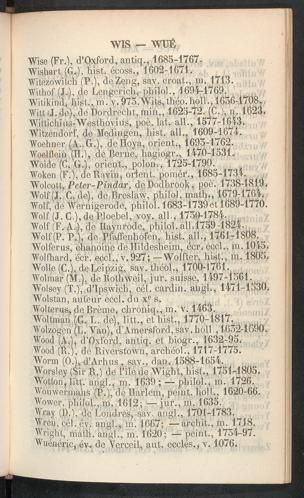 WIS — WUÉ
Wise (Fr.), d'Oxford, antiq., 1685-1767.
Wishart (G.), hist. écoss., 1602-1671.
Witezowitch (P.), de Zeng, sav. croat., m. 1713.
Withof (J.), de Lengerich, philol., 1694-1769.
Witikind, hist., m. v. 973. Wits, théo. holl., 1636-1708.
Witt (J. de), de Dordrecht, min., 1625-72. (C.), n. 1623.
Wittichius-Westhovius, poë. lat. all., 1577-1643.
Witzendorf, de Medingen, hist. all., 1609-1674.
Woehner (A. G.), de Hoya, orient., 1693-1762.
Woelflein (H.), de Berne, hagiogr., 1470-1531.
Woïde (C. G.), orient., polon., 1725-1790.
Woken (F.), de Ravin, orient. pomér., 1685-1734.
Wolcott, Peter-Pindar, de Dodbrook, poë. 1738-1819.
Wolf (J. C. de), de Breslaw, philol., math., 1679-1754.
Wolf, de Wernigerode, philol. 1683-1739 et 1689-1770.
Wolf (J. C.), de Ploebel, voy. all., 1730-1784.
Wolf (F. A.), de Haynrode, philol. all. 1759-1824.
Wolf (P. P.), de Pfaffenhofen, hist. all., 1761-1808.
Wolferus, chanoine de Hildesheim, écr. eccl., m. 1045.
Wolfhard, écr. eccl., v. 927; — Wolfter, hist., m. 1805.
Wolle (C.), de Leipzig, sav. théol., 1700-1761.
Wolmar (M.), de Rothweil, jur. suisse, 1497-1561.
Wolsey (T.), d'Ipswich, cél. cardin. angl., 1471-1530.
Wolstan, auteur eccl. du xe s.
Wolterus, de Brème, chroniq., m. v. 1463.
Woltman (C. L. de), litt., et hist., 1770-1817.
Wolzogen (L. Van), d'Amersford, sav. holl., 1632-1690.
Wood (A.), d'Oxford, antiq. et biogr., 1632-95.
Wood (R.), de Riverstown, archéol., 1717-1775.
Worm (O.), d'Arhus, sav. dan., 1588-1654.
Worsley (Sir R.), de l'île de Wight, hist., 1751-1805.
Wotton, litt. angl., m. 1639; — philol., m. 1726.
Wouwermans (P.), de Harlem, peint. holl., 1620-66.
Wower, philol., m. 1612; — jur., m. 1635.
Wray (D.), de Londres, sav. angl., 1701-1783.
Wren, cél. év. angl., m. 1667; — archit., m. 1718.
Wright, math. angl., m. 1620; — peint., 1734-97.
Wuenéric, év. de Verceil, aut. ecclés., v. 1076.